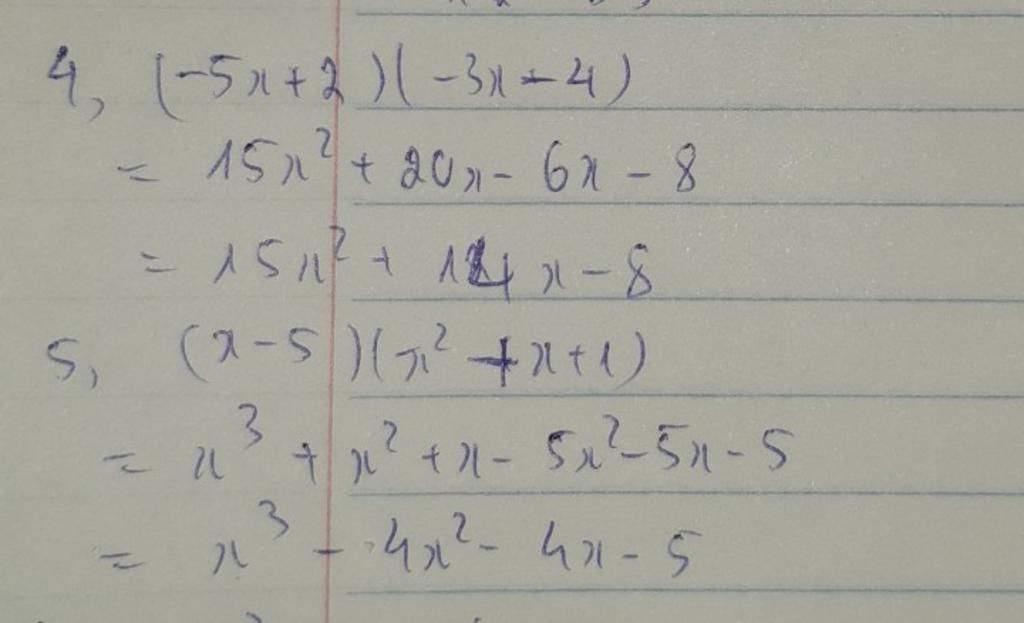 4, (-5x+2)(-3x-4)
= 15x² + 20x - 6x - 8
= 15x² + 14x - 8
5, (x-5)(x² + x + 1)
= x³ + x² + x - 5x² - 5x - 5
= x³ - 4x² - 4x - 5